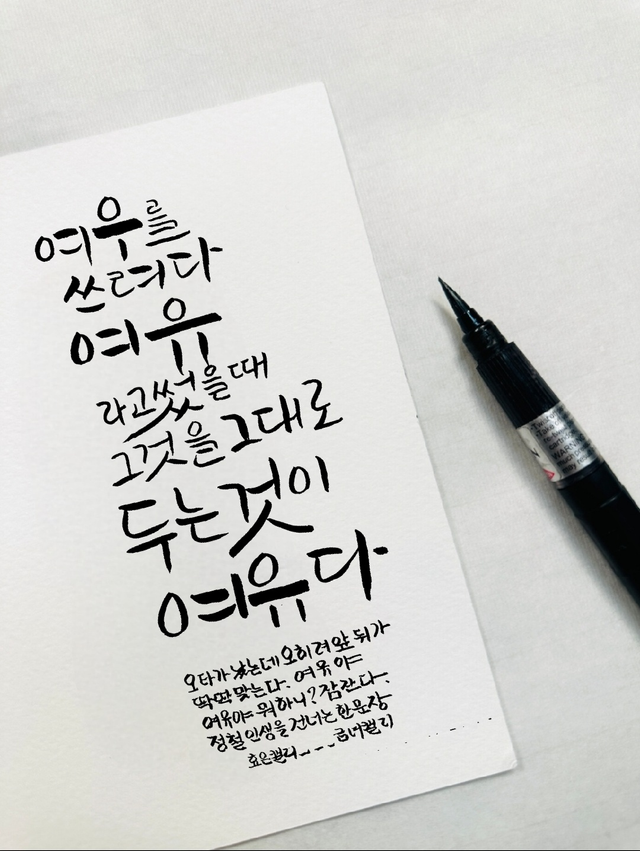 여우를
쓰려다
여유
라고 썼을 때
그것을 그대로
두는 것이
여유다
오타가 났는데 오히려 앞 뒤가
딱딱 맞는다. 여유야
여유야 뭐하니? 잠잔다.
정철 인생을 건너는 한 문장
효은캘리
WARN